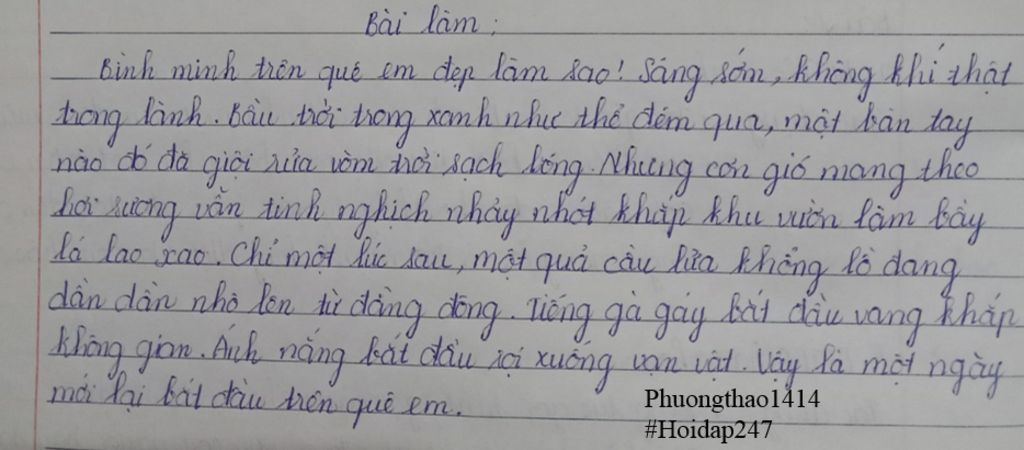 Bài làm:
Bình minh trên quê em đẹp làm sao! Sáng sớm, không khí thật
trong lành. Bầu trời trong xanh như thể đêm qua, một bàn tay
nào đó đã giội rửa vòm trời sạch bóng. Nhưng cơn gió mang theo
hơi sương vẫn tinh nghịch nhảy nhót khắp khu vườn làm bầy
lá lao xao. Chỉ một lúc sau, một quả cầu lửa khổng lồ đang
dần dần nhô lên từ đằng đông. Tiếng gà gáy bắt đầu vang khắp
không gian. Ánh nắng bắt đầu rọi xuống vạn vật. Vậy là một ngày
mới lại bắt đầu trên quê em.
Phuongthao1414
#Hoidap247